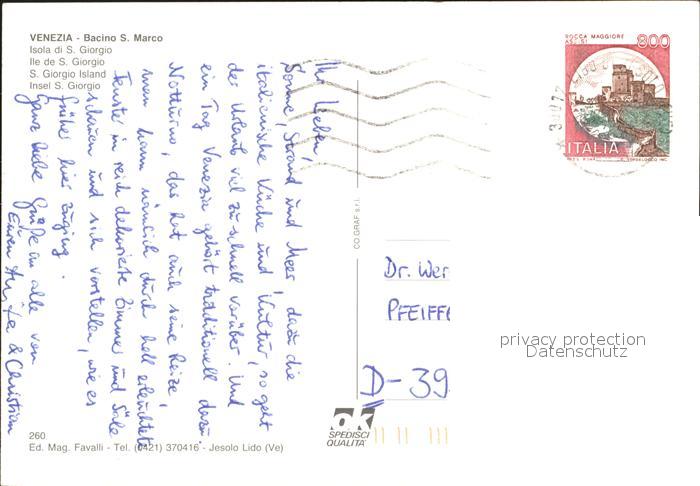 VENEZIA - Bacino S. Marco
Isola di S. Giorgio
Ile de S. Giorgio
S. Giorgio Island
Insel S. Giorgio
Ihr Lieben,
Sonne, Strand und Meer, dazu die
italienische Küche und Kultur, so geht
der Urlaub viel zu schnell vorüber. Und
ein Tag Venezia gehört traditionell dazu.
Notturno, das hat auch seine Reize,
man kann nämlich durch hell erleuchtete
Fenster in reich dekorierte Zimmer und Säle
schauen und sich vorstellen, wie es
früher hier zuging.
Ganz liebe Grüße an alle von
Euren & Christian
260
Ed. Mag. Favalli - Tel. (0421) 370416 - Jesolo Lido (Ve)
CO.GRAF s.r.l.
ok
SPEDISCI
QUALITÀ
ROCCA MAGGIORE
ASSISI
800
ITALIA
Dr. Wer
PFEIFF
D-39
privacy protection
Datenschutz